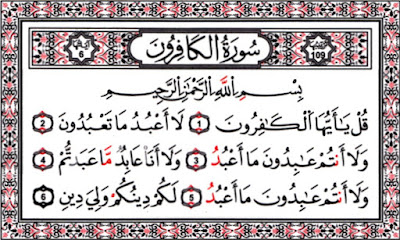 سُورَةُ الْكَافِرُونَ
109
6
بِسْمِ اللَّهِ الرَّحْمَٰنِ الرَّحِيمِ
قُلْ يَا أَيُّهَا الْكَٰفِرُونَ 1 لَا أَعْبُدُ مَا تَعْبُدُونَ 2
وَلَا أَنتُمْ عَٰبِدُونَ مَا أَعْبُدُ 3 وَلَا أَنَا عَابِدٌ مَّا عَبَدتُّمْ 4
وَلَا أَنتُمْ عَٰبِدُونَ مَا أَعْبُدُ 5 لَكُمْ دِينُكُمْ وَلِيَ دِينِ 6